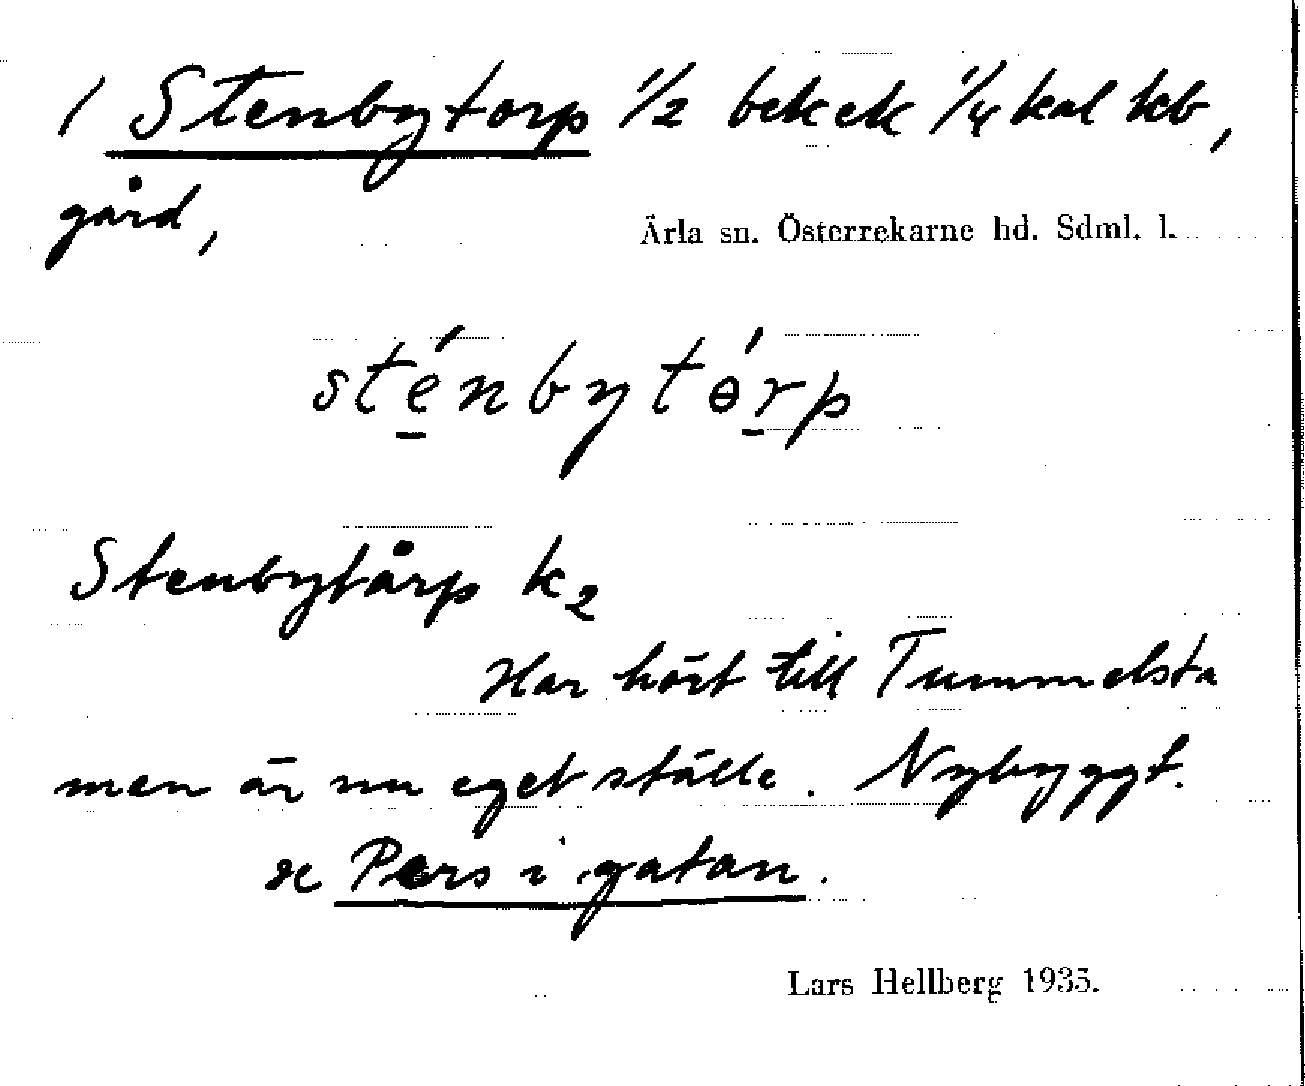 1 Stenbytorp 1/2 bek ek 1/4 kal kb,
gård,
Ärla sn. Österrekarne hd. Sdml. l.
sténbytɵ́rp
Stenbytårp k2
Har hört till Tummelsta
men är nu eget ställe. Nybyggt.
se Pers i gatan.
Lars Hellberg 1935.